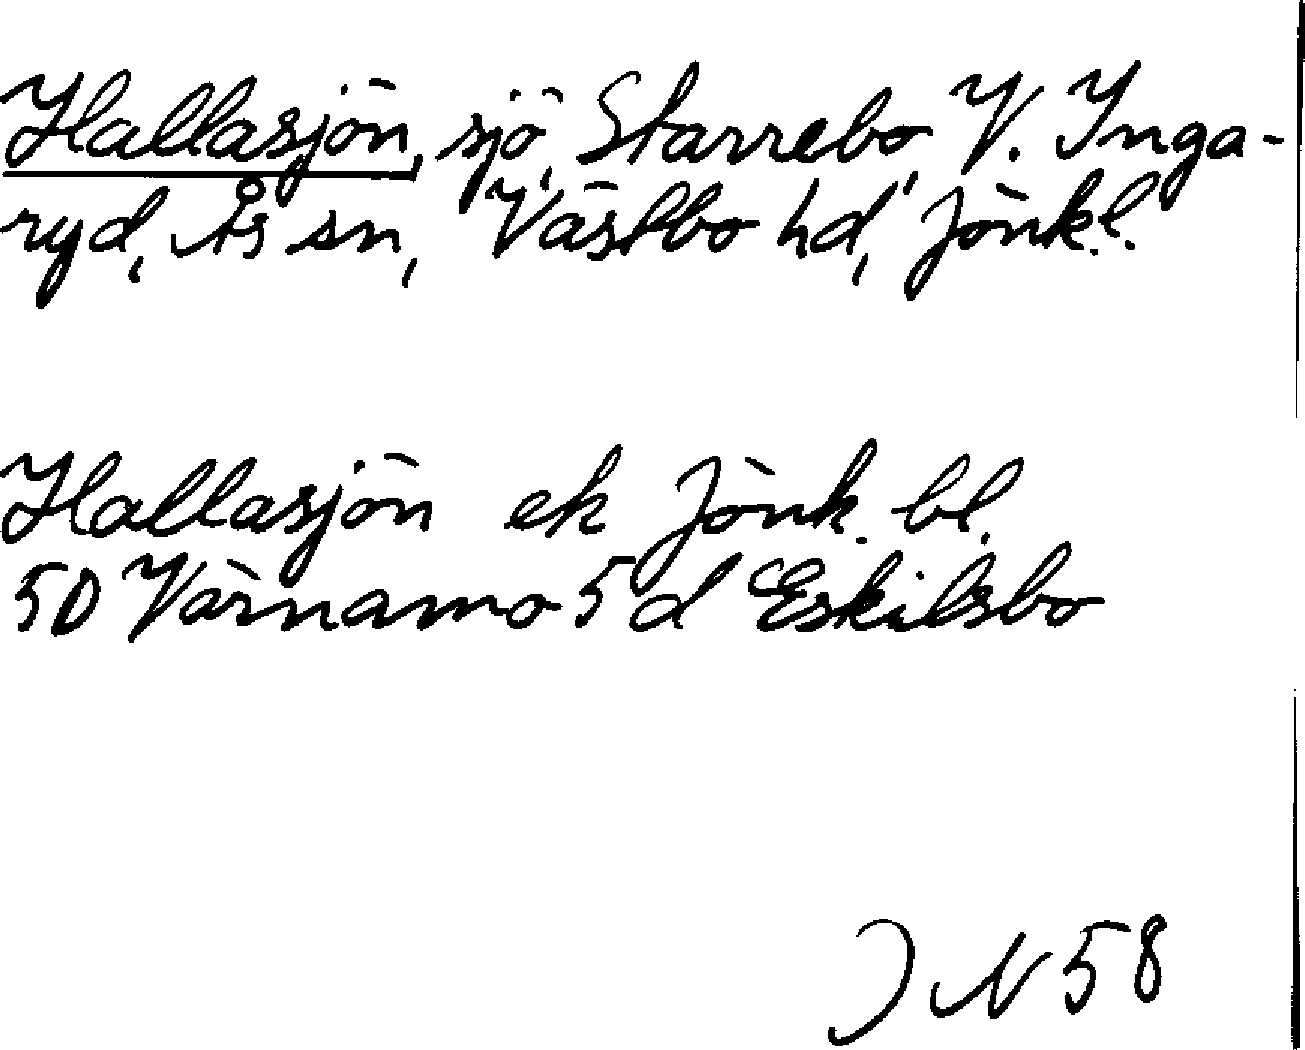 Hallasjön, sjö, Starrebo, V. Inga-
ryd, Ås sn, Västbo hd, Jönk.l.
Hallasjön ek Jönk. bl.
5D Värnamo 5 d Eskilsbo
JN 58